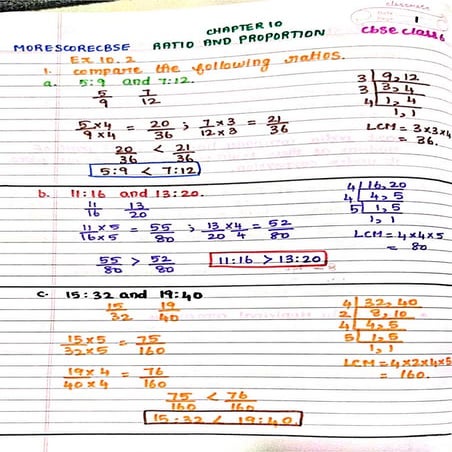 classmate
Date
Page 1
CHAPTER 10
MORESCORECBSE RATIO AND PROPORTION CBSE CLASS 6
Ex 10.2
1. compare the following ratios.
a. 5:9 and 7:12.
5/9 7/12
5×4/9×4 = 20/36 ; 7×3/12×3 = 21/36
20/36 < 21/36
5:9 < 7:12
3 | 9, 12
3 | 3, 4
4 | 1, 4
1, 1
LCM = 3×3×4
= 36.
b. 11:16 and 13:20.
11/16 13/20
11×5/16×5 = 55/80 ; 13×4/20 4 = 52/80
55/80 > 52/80 11:16 > 13:20
4 | 16, 20
4 | 4, 5
5 | 1, 5
1, 1
LCM = 4×4×5
= 80
c. 15:32 and 19:40
15/32 19/40
15×5/32×5 = 75/160
19×4/40×4 = 76/160
75/160 < 76/160
15:32 < 19:40.
4 | 32, 40
2 | 8, 10
4 | 4, 5
5 | 1, 5
1, 1
LCM = 4×2×4×5
= 160.